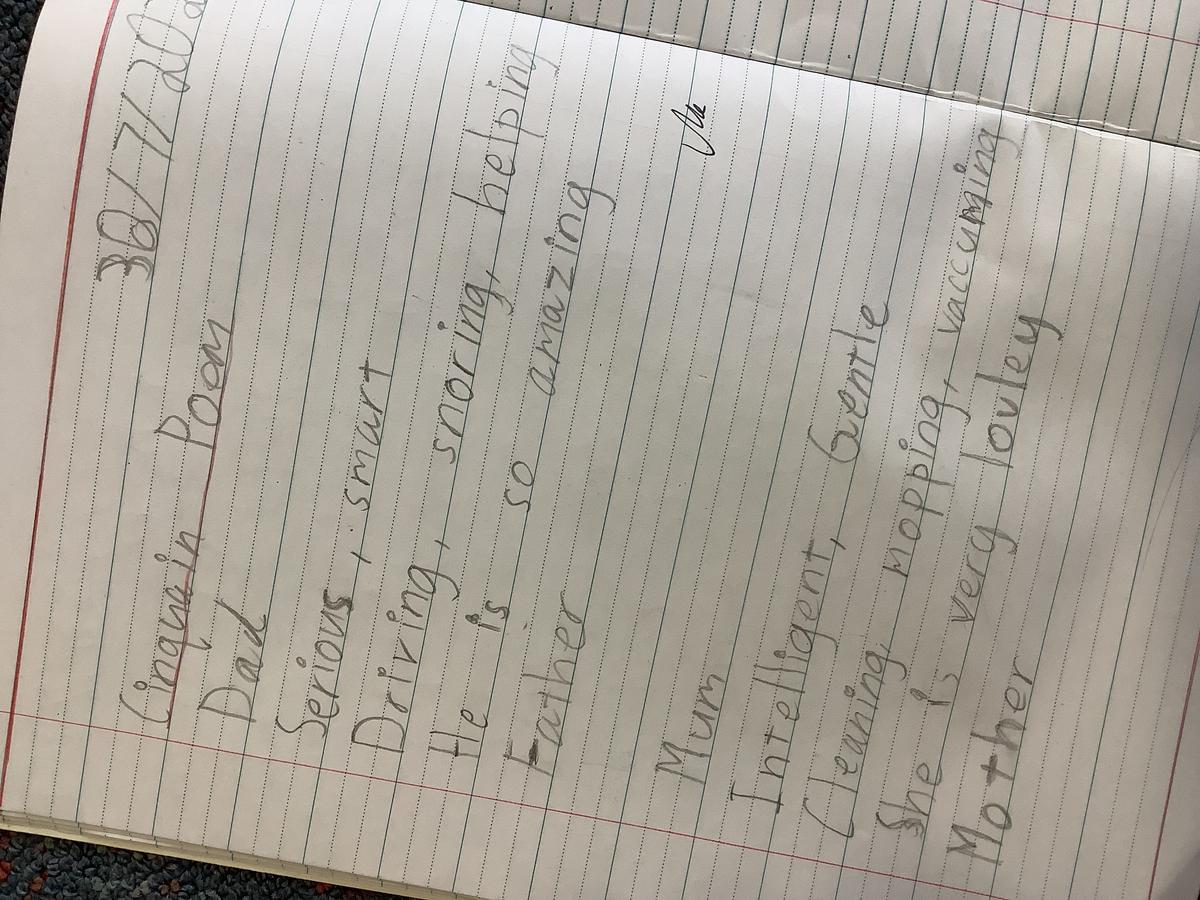 30/7/202
Cinquain Poem
Dad
Serious, smart
Driving, snoring, helping
He is so amazing
Father
Mum
Intelligent, Gentle
Cleaning, mopping, vaccuming
She is very lovley
Mother